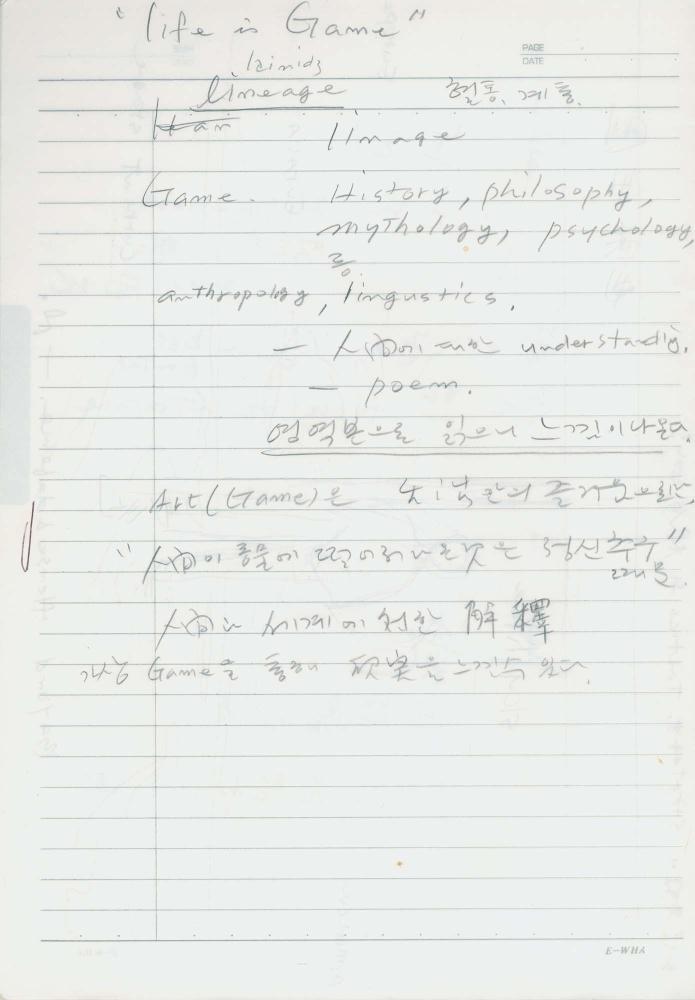 "life is Game"
PAGE
DATE
lineage 혈통, 계통.
linage
Game. History, philosophy,
mythology, psychology,
등
anthropology, lingustics.
— 人間에 대한 understandig.
— poem.
영역본으로 읽으니 느낌이 나온다.
Art(Game)은 즐거움으로
"人間이 동물에 떨어져 나온것은 정신추구"
때문.
人間과 세계에 의한 解釋
가상 Game을 통해 현실을 느낄수 있다.
E-WHA